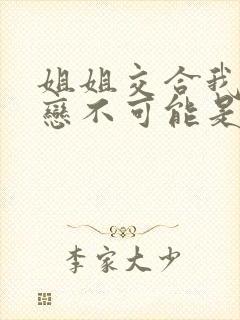 姐姐交合我
戀不可能是
李家大少